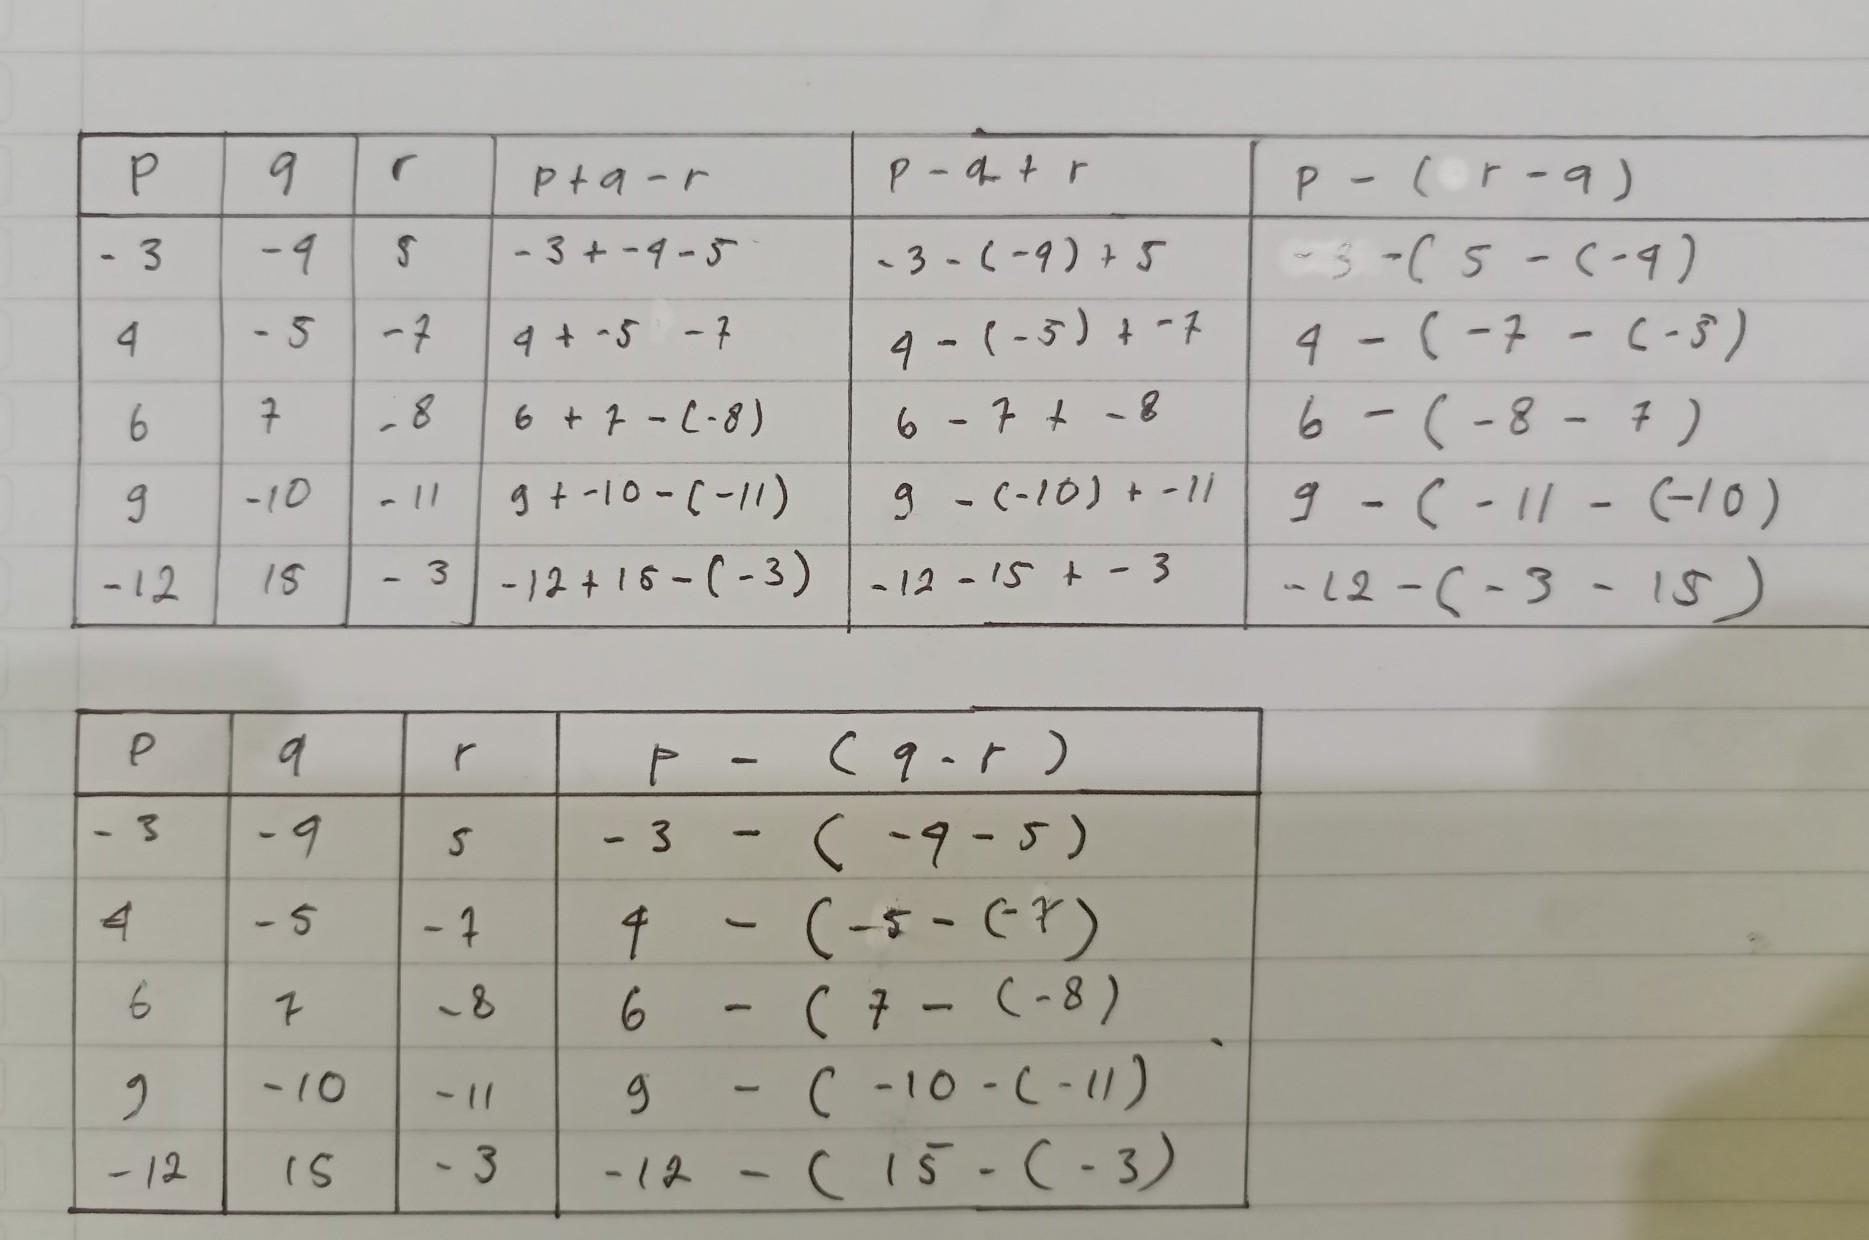 p q r p+q-r p-q+r p-(r-q)
-3 -4 5 -3+-4-5 -3-(-4)+5 -3-(5-(-4)
4 -5 -7 4+-5 -7 4-(-5)+-7 4-(-7-(-5)
6 7 -8 6+7-(-8) 6-7+-8 6-(-8-7)
9 -10 -11 9+-10-(-11) 9-(-10)+-11 9-(-11-(-10)
-12 15 -3 -12+15-(-3) -12-15+-3 -12-(-3-15)
p q r p-(q-r)
-3 -4 5 -3-(-4-5)
4 -5 -7 4-(-5-(-7)
6 7 -8 6-(7-(-8)
9 -10 -11 9-(-10-(-11)
-12 15 -3 -12-(15-(-3)